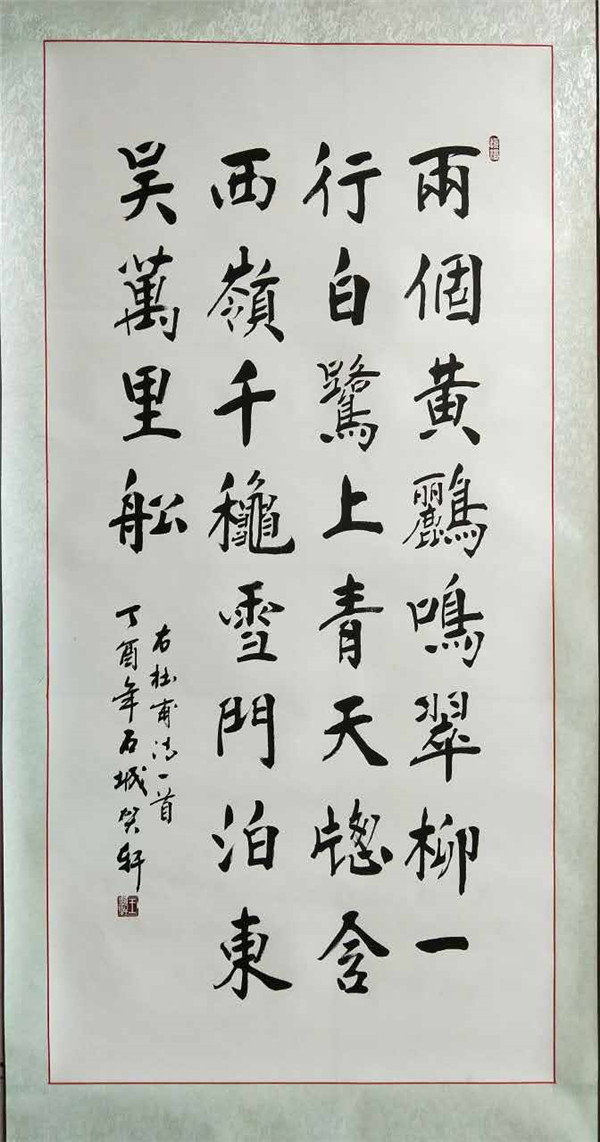 兩個黃鸝鳴翠柳一
行白鷺上青天窗含
西嶺千龝雪門泊東
吳萬里船
右杜甫詩一首
丁酉年石城癸軒